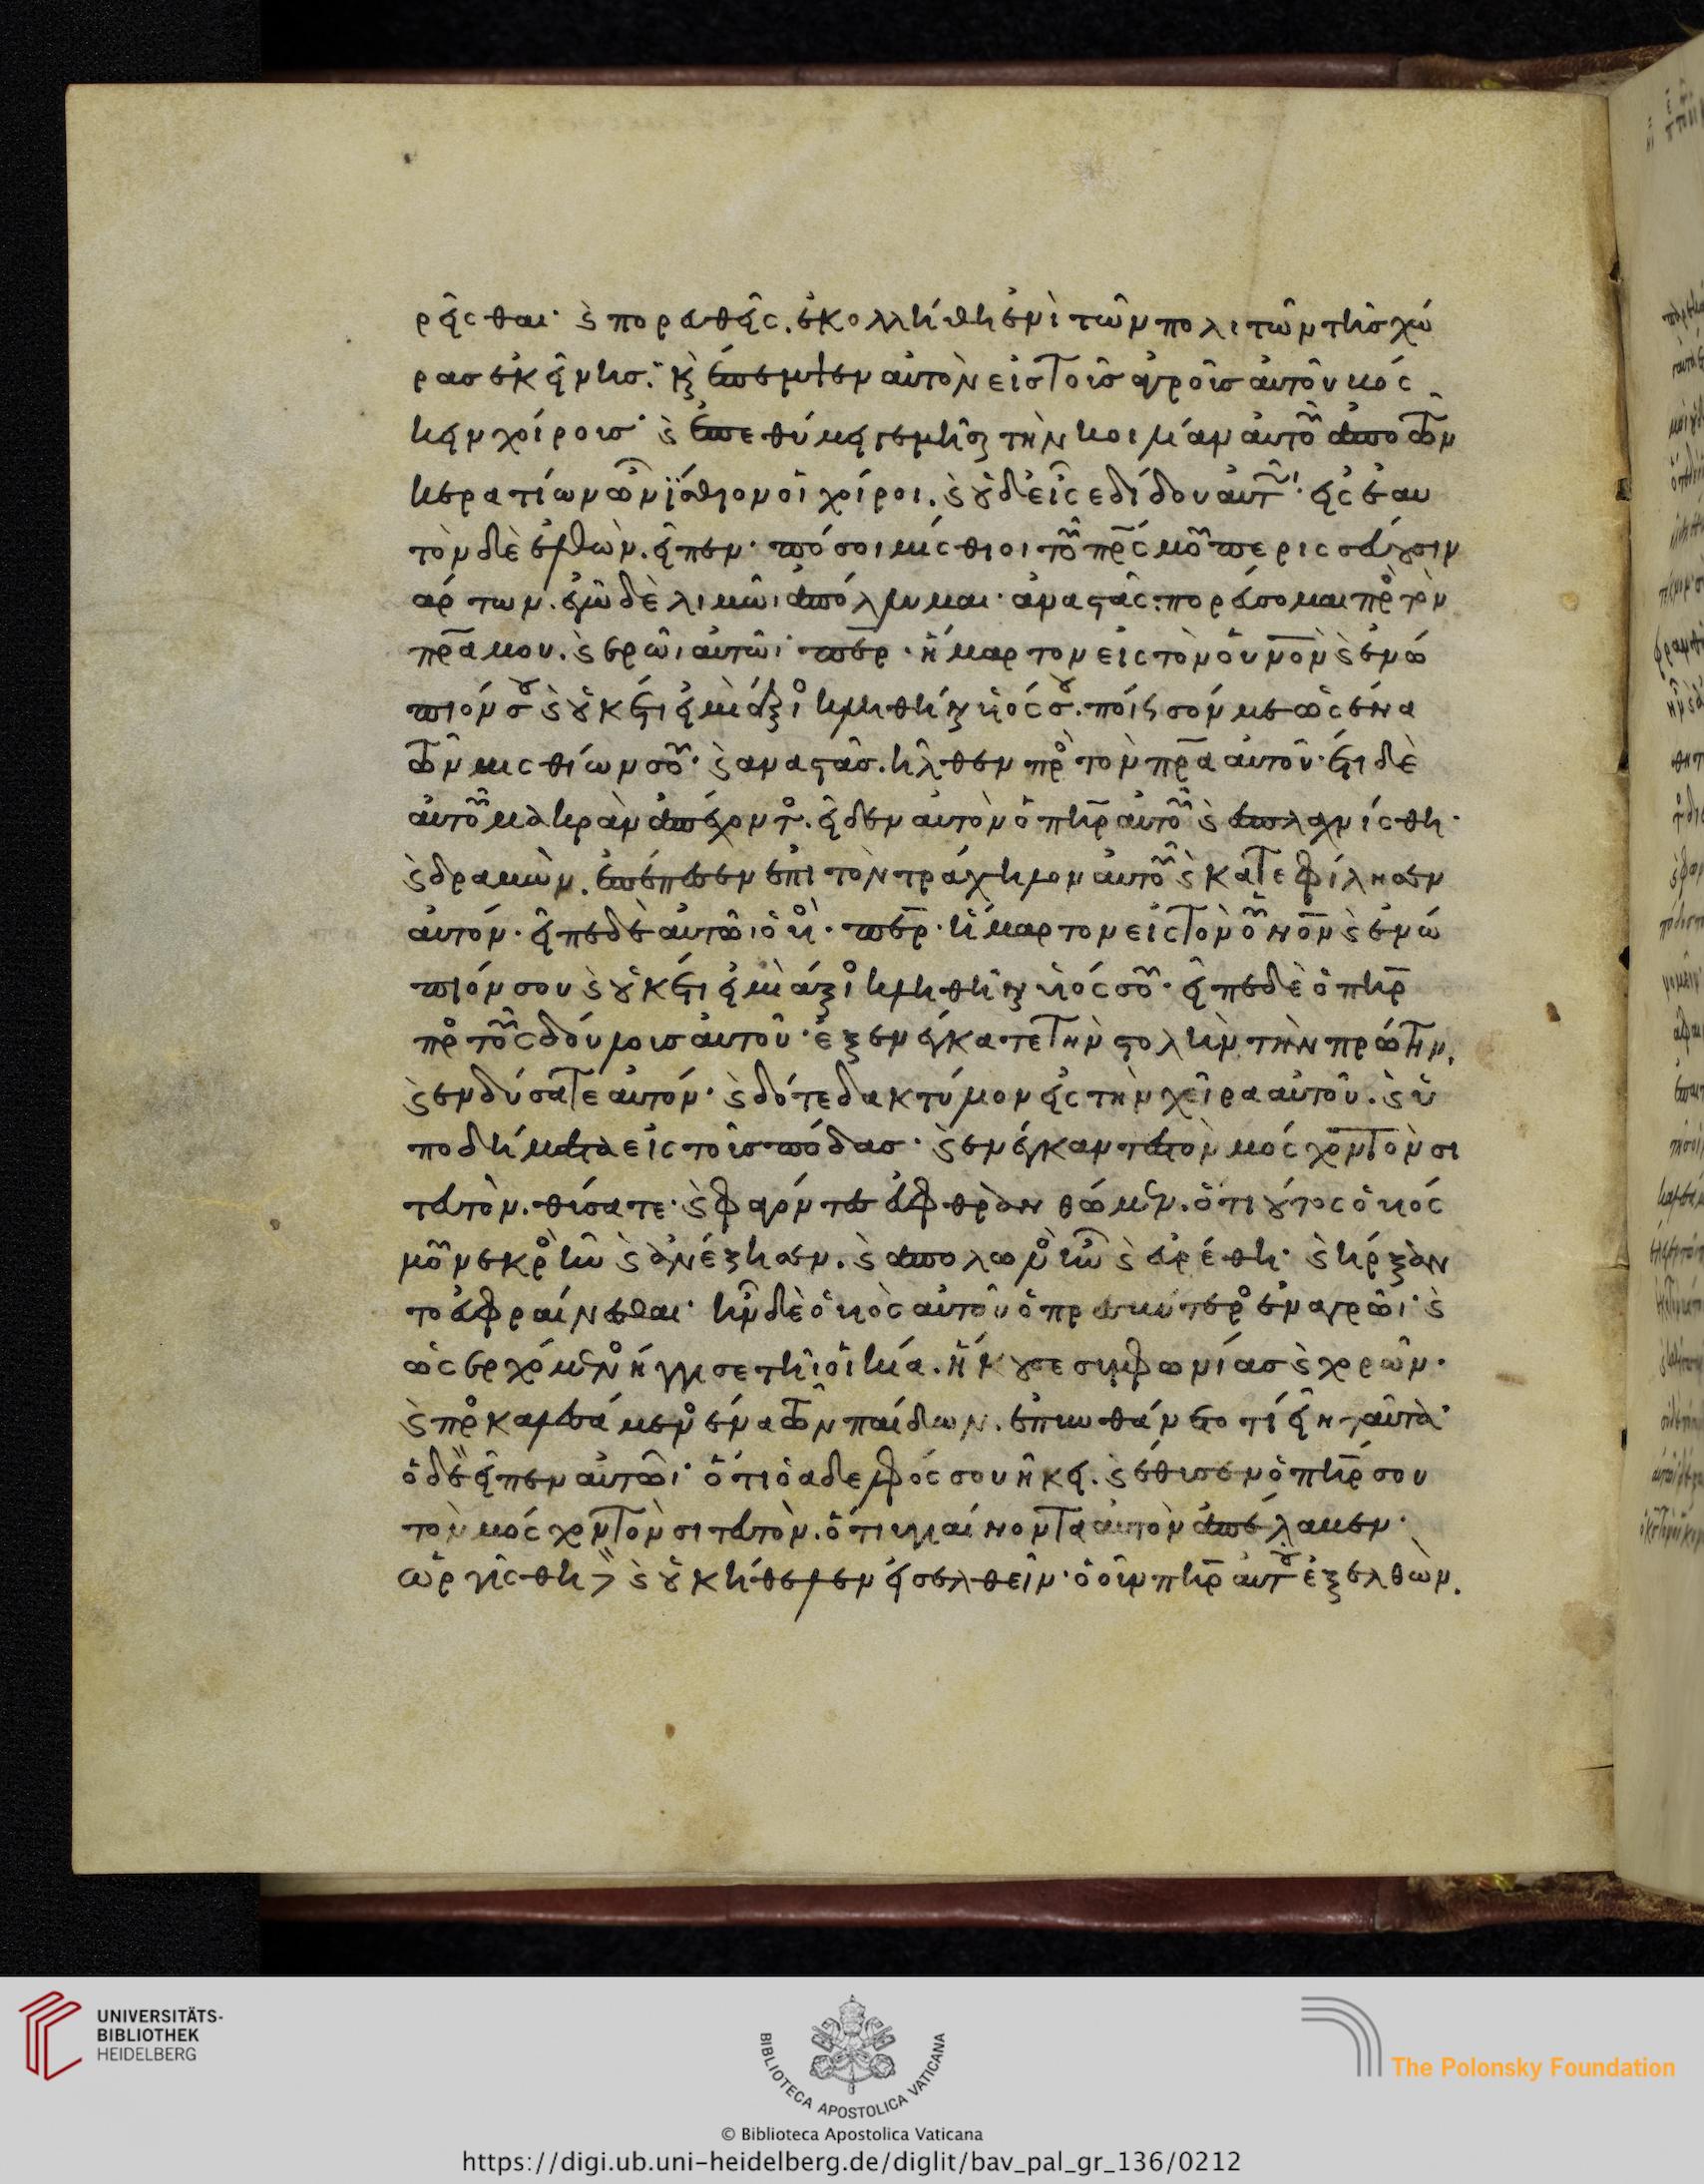 ρεῖσθαι· ϛ πορευθεὶς. ἐκολλήθη ἑνὶ τῶν πολιτῶν τῆσ χώ
ρασ ἐκείνησ· κ̀ ἔπεμψεν αὐτὸν εἰς τοῖσ ἀγροῖσ αὐτοῦ βός
κειν χοίροισ· ϛ ἐπεθύμει γεμίσαι τὴν κοιλίαν αὐτοῦ ἀπὸ τῶν
κερατίων ὧν ἤσθιον οἱ χοίροι. ϛ οὐδεὶς ἐδίδου αὐτῶ· εἰς ἑαυ
τὸν δὲ ἐλθὼν. εἶπεν· πόσοι μίσθιοι τοῦ πρ̅ς μοῦ περισσεύουσιν
άρτων. ἐγὼ δὲ λιμῶι ἀπόλλυμαι· ἀναστὰς πορεύσομαι πρὸ τὸν
πρ̅α μου. ϛ ἐρῶι αὐτῶι· πε̅ρ· ἥμαρτον εἰς τὸν οὐνο̅ν ϛ ἐνώ
πιόν σου ϛ οὐκέτι εἰμὶ άξιο κληθῆναι υἱός σου. ποίησόν με ὡς ένα
τῶν μισθίων σοῦ· ϛ αναστὰσ. ἦλθεν πρὸ τὸν πρ̅α αὐτοῦ· έτι δὲ
αὐτοῦ μακρὰν ἀπέχοντο. εἶδεν αὐτὸν ὁ πη̅ρ αὐτοῦ ϛ ἐσπλαχνίσθη·
ϛ δραμὼν. ἐπέπεσεν ἐπὶ τὸν τράχηλον αὐτοῦ ϛ κατεφίλησεν
αὐτόν· εἶπε δὲ αὐτῶι ὁ υἱὸ· πε̅ρ· ἥμαρτον εἰς τὸν οὐνο̅ν ϛ ἐνώ
πιόν σου ϛ οὐκέτι εἰμὶ άξιο κληθῆναι υἱός σοῦ· εἶπε δὲ ὁ πη̅ρ
πρὸ τοὺς δούλοισ αὐτοῦ· ἐξενέγκατε τὴν στολὴν τὴν πρώτην,
ϛ ενδύσατε αὐτόν· ϛ δότε δακτύλιον εἰς τὴν χεῖρα αὐτοῦ. ϛ ὑ
ποδήματα εἰς τοῖσ πόδασ· ϛ ενέγκαντετὸν μόσχον τὸν σι
τευτὸν. θύσατε· ϛ φαγόντε εὐφρανθῶμεν. ὅτι οὗτος ὁ υἱός
μοῦ νεκρὸ ἦν ϛ ἀνέζησεν. ϛ ἀπολωλὸ ἦν ϛ εὑρέθη· ϛ ήρξαν
το εὐφραίνεσθαι· ἦν δὲ ὁ υἱὸς αὐτοῦ ὁ πρεσβύτερο ἐν αγρῶι· ϛ
ὡς ερχόμενο ήγγισε τῆι οἰκία. ἤκουσε συμφωνίασ ϛ χορῶν·
ϛ προσκαλεσάμενο ένα τῶν παίδων. ἐπυνθάνετο τί είη ταῦτα·
ὁ δὲ εἶπεν αὐτῶι· ὅτι ὁ αδελφός σου ἥκει. ϛ έθυσεν ὁ πη̅ρ σου
τὸν μόσχον τὸν σιτευτὸν. ὅτι υγιαίνοντα αὐτὸν ἀπέλαβεν·
ὠργίσθη ϛ οὐκ ήθελεν εἰσελθεῖν· ὁ οὖν πη̅ρ αὐτοῦ ἐξελθὼν.
UNIVERSITÄTS-
BIBLIOTHEK
HEIDELBERG
BIBLIOTECA APOSTOLICA VATICANA
The Polonsky Foundation
© Biblioteca Apostolica Vaticana
https://digi.ub.uni-heidelberg.de/diglit/bav_pal_gr_136/0212